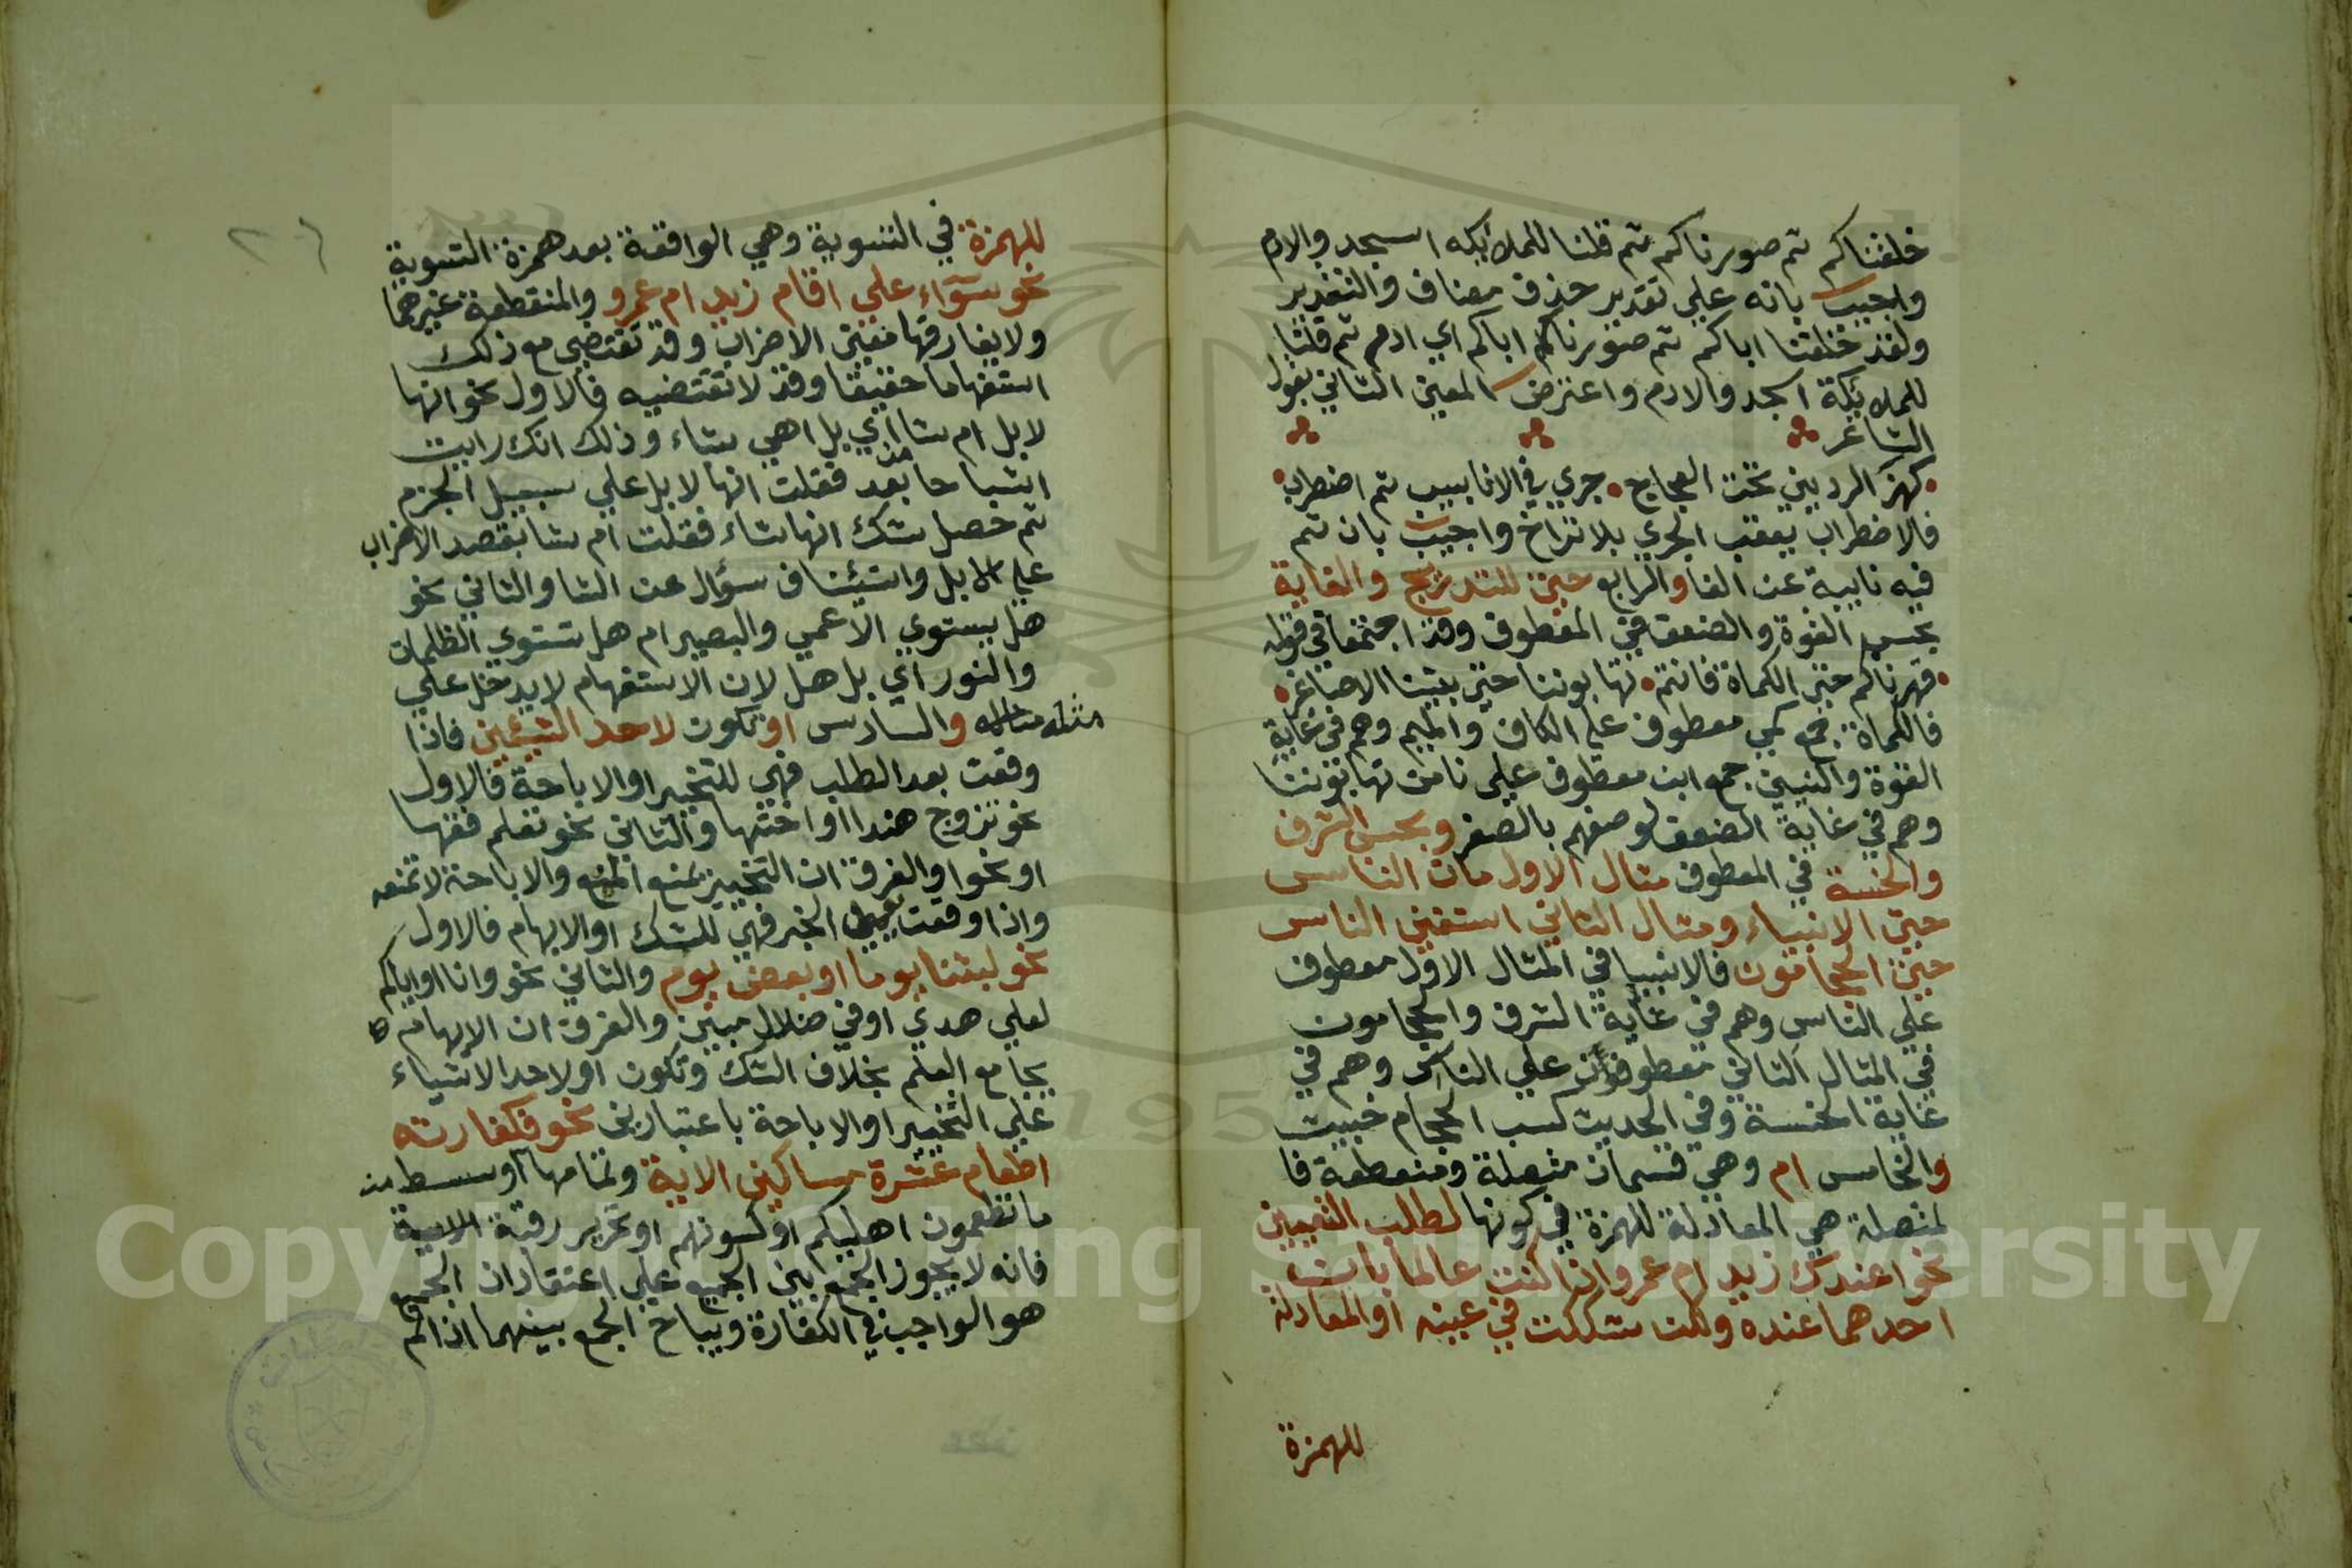 خلقناكم ثم صورناكم ثم قلنا للملائكه اسجدوالادم
واجيب بانه علي تقدير حذف مضاف والتقدير
ولقد خلقنا اباكم ثم صورنا اباكم اي ادم ثم قلنا
للملائكة اسجدوالادم واعترض المعني الثاني بقول
الشاعر
كهز الرديني تحت العجاج جري في الانابيب ثم اضطرب
فالاضطراب يعقب الجري بلا تراخ واجيب بان ثم
فيه نايبة عن الفا والرابع حتي للتدريج والغاية
بحسب القوة والضعف في المعطوف وقد اجتمعا في قوله
قهرناكم حتي الكماة فانتم تهابوننا حتي بنينا الاصاغر
فالكماة جمع كمي معطوف علي الكاف والميم وهم في غاية
القوة والبنين جمع ابن معطوف علي نا من تهابوننا
وهم في غاية الضعف لوصفهم بالصغر وبحسب الشرف
والخسة في المعطوف مثال الاول مات الناس
حتي الانبياء ومثال الثاني استغني الناس
حتي الحجامون فالانبيا في المثال الاول معطوف
علي الناس وهم في غاية الشرف والحجامون
في المثال الثاني معطوفون علي الناس وهم في
غاية الخسة وفي الحديث كسب الحجام خبيث
والخامس ام وهي قسمان متصلة ومنقطعة فا
لمتصلة هي المعادلة للهمزة في كونها لطلب التعيين
نحو اعندك زيد ام عمرو اذا كنت عالما بان
احدهما عنده ولكن شككت في عينه او المعادلة
للهمزة
للهمزة في التسوية وهي الواقعة بعد همزة التسوية
نحو سواء علي اقام زيد ام عمرو والمنقطعة غيرهما
ولا يفارقها معني الاضراب وقد تقتضي مع ذلك
استفهاما حقيقا وقد لا تقتضيه فالاول نحو انها
لابل ام شا اي بل اهي شاء وذلك انك رايت
اشباحا من بعد فقلت انها لابل علي سبيل الجزم
ثم حصل شك انها شاء فقلت ام شا بقصد الاضراب
علي لابل واستئناف سؤال عن الشا والثاني نحو
هل يستوي الاعمي والبصير ام هل تستوي الظلمات
والنور اي بل هل لان الاستفهام لا يدخل علي
مثله والسادس او تكون لاحد الشيئين فاذا
وقعت بعد الطلب فهي للتخيير او الاباحة فالاول
نحو تزوج هندا او اختها والثاني نحو تعلم فقها
او نحوا والفرق ان التخيير يمنع الجمع والاباحة لا تمنعه
واذا وقعت الخبر فهي للشك او الابهام فالاول
نحو لبثنا يوما او بعض يوم والثاني نحو وانا او اياكم
لعلي هدي او في ضلال مبين والفرق ان الابهام
يجامع العلم بخلاف الشك وتكون او لاحد الاشياء
علي التخيير او الاباحة باعتبارين نحو فكفارته
اطعام عشرة مساكين الاية وتمامها اوسط من
ما تطعمون اهليكم او كسوتهم او تحرير رقبة الاية
فانه لا يجوز الجمع بين الجميع علي اعتقاد ان الجميع
هو الواجب في الكفارة ويباح الجمع بينهما اذا لم
Copyright © King Saud University
195